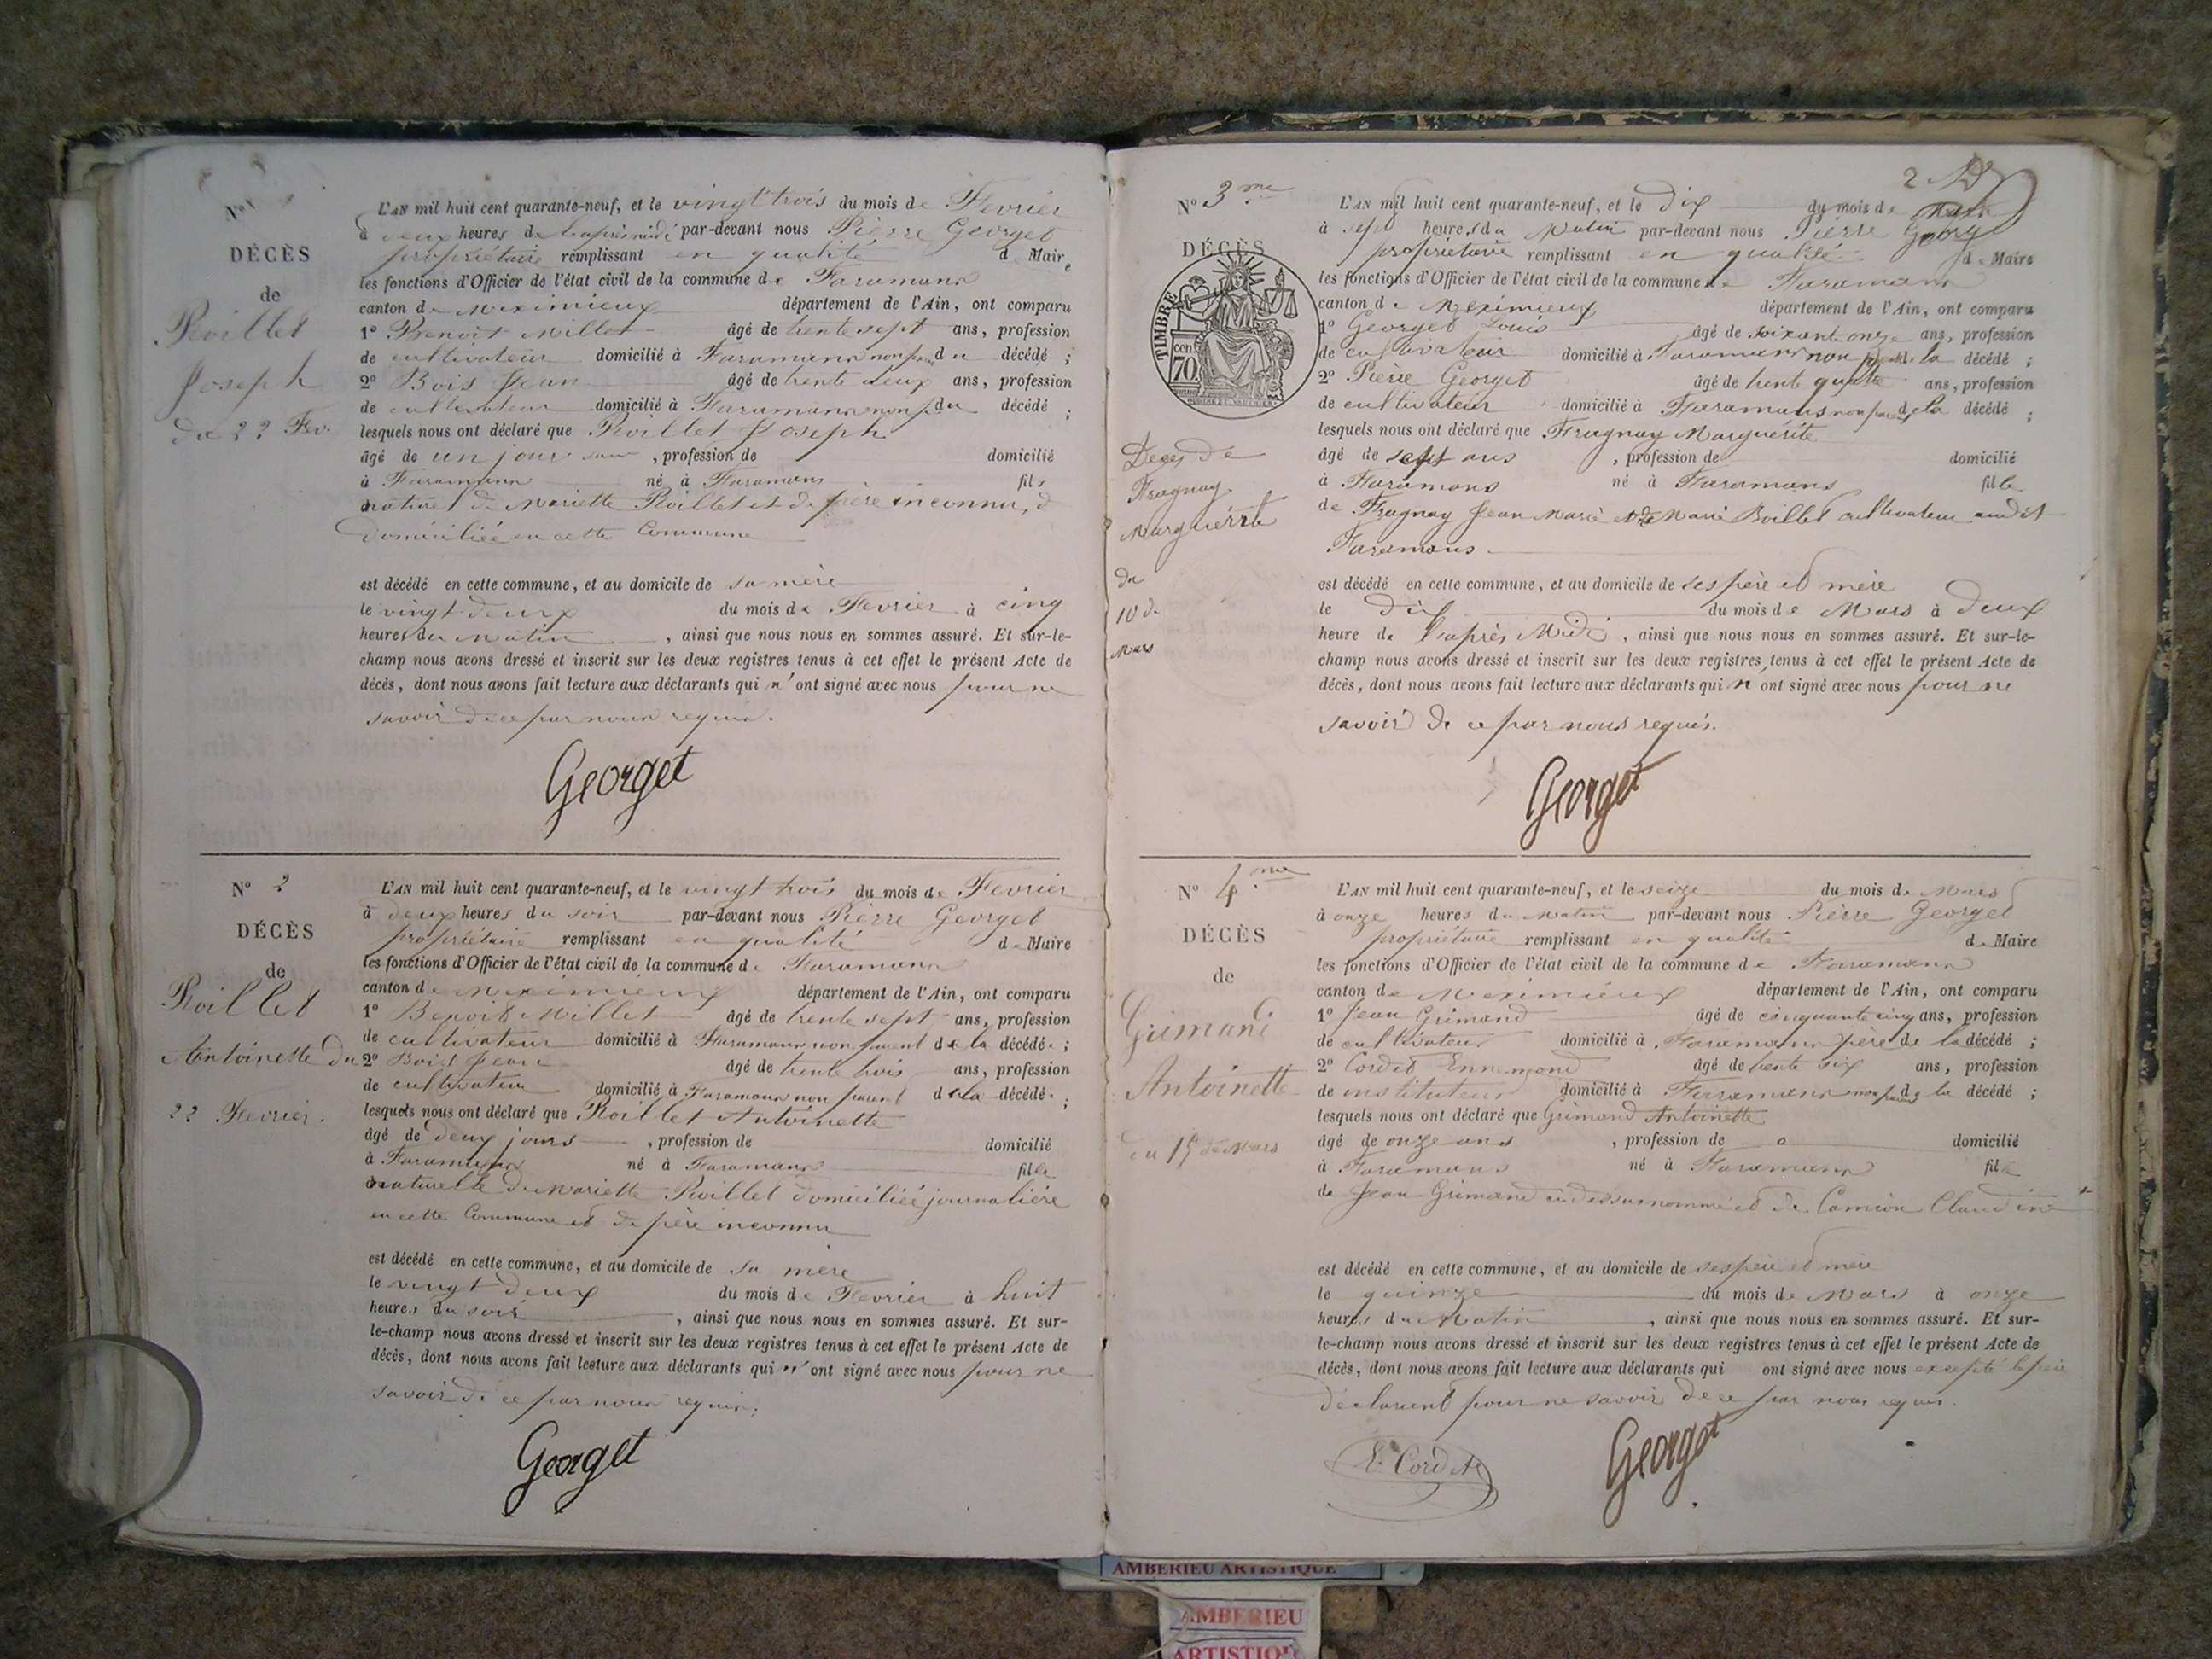 N° 1
DÉCÈS
de
Roillet
Joseph
du 22 Fev.
L'AN mil huit cent quarante-neuf, et le vingt trois du mois de Fevrier
à deux heures de l'après midi par-devant nous Pierre Georget
propriétaire remplissant en qualité de Maire
les fonctions d'Officier de l'état civil de la commune de Faramans
canton de Meximieux département de l'Ain, ont comparu
1° Benoit Millet âgé de trente sept ans, profession
de cultivateur domicilié à Faramans non parent du décédé ;
2° Bois Jean âgé de trente deux ans, profession
de cultivateur domicilié à Faramans non p. du décédé ;
lesquels nous ont déclaré que Roillet Joseph
âgé de un jour , profession de domicilié
à Faramans né à Faramans fils
naturel de Mariette Roillet et de père inconnu,
domiciliée en cette Commune
est décédé en cette commune, et au domicile de sa mère
le vingt deux du mois de Fevrier à cinq
heures du matin , ainsi que nous nous en sommes assuré. Et sur-le-
champ nous avons dressé et inscrit sur les deux registres tenus à cet effet le présent Acte de
décès, dont nous avons fait lecture aux déclarants qui n'ont signé avec nous pour ne
savoir de ce par nous requis.
Georget
N° 2
DÉCÈS
de
Roillet
Antoinette du
22 Fevrier.
L'AN mil huit cent quarante-neuf, et le vingt trois du mois de Fevrier
à deux heures du soir par-devant nous Pierre Georget
propriétaire remplissant en qualité de Maire
les fonctions d'Officier de l'état civil de la commune de Faramans
canton de Meximieux département de l'Ain, ont comparu
1° Benoit Millet âgé de trente sept ans, profession
de cultivateur domicilié à Faramans non parent de la décédé ;
2° Bois Jean âgé de trente trois ans, profession
de cultivateur domicilié à Faramans non parent de la décédé ;
lesquels nous ont déclaré que Roillet Antoinette
âgé de deux jours , profession de domicilié
à Faramans né à Faramans fille
naturelle de Mariette Roillet domiciliée journalière
en cette Commune et de père inconnu
est décédé en cette commune, et au domicile de sa mère
le vingt deux du mois de Fevrier à huit
heures du soir , ainsi que nous nous en sommes assuré. Et sur-
le-champ nous avons dressé et inscrit sur les deux registres tenus à cet effet le présent Acte de
décès, dont nous avons fait lecture aux déclarants qui n'ont signé avec nous pour ne
savoir de ce par nous requis.
Georget
2
N° 3me
DÉCÈS
TIMBRE
70 cen
Deces de
Frugnay
Marguérite
du
10 de
Mars
L'AN mil huit cent quarante-neuf, et le dix du mois de Mars
à sept heures du Matin par-devant nous Pierre Georget
propriétaire remplissant en qualité de Maire
les fonctions d'Officier de l'état civil de la commune de Faramans
canton de Meximieux département de l'Ain, ont comparu
1° Georget Louis âgé de soixante onze ans, profession
de cultivateur domicilié à Faramans non parent de la décédé ;
2° Pierre Georget âgé de trente quatre ans, profession
de cultivateur domicilié à Faramans non parent de la décédé ;
lesquels nous ont déclaré que Frugnay Marguérite
âgé de sept ans , profession de domicilié
à Faramans né à Faramans fille
de Frugnay Jean Marie et de Marie Boillet cultivateur audit
Faramans
est décédé en cette commune, et au domicile de ses père et mère
le dix du mois de Mars à deux
heure de l'après Midi , ainsi que nous nous en sommes assuré. Et sur-le-
champ nous avons dressé et inscrit sur les deux registres tenus à cet effet le présent Acte de
décès, dont nous avons fait lecture aux déclarants qui n ont signé avec nous pour ne
savoir de ce par nous requis.
Georget
N° 4me
DÉCÈS
de
Grimand
Antoinette
du 15 de Mars
L'AN mil huit cent quarante-neuf, et le seize du mois de Mars
à onze heures du Matin par-devant nous Pierre Georget
propriétaire remplissant en qualité de Maire
les fonctions d'Officier de l'état civil de la commune de Faramans
canton de Meximieux département de l'Ain, ont comparu
1° Jean Grimand âgé de cinquante cinq ans, profession
de cultivateur domicilié à Faramans père de la décédé ;
2° Cordet Ennemond âgé de trente six ans, profession
de instituteur domicilié à Faramans non parent de la décédé ;
lesquels nous ont déclaré que Grimand Antoinette
âgé de onze ans , profession de o domicilié
à Faramans né à Faramans fille
de Jean Grimand ci dessus nommé et de Camion Claudine
est décédé en cette commune, et au domicile de ses père et mère
le quinze du mois de Mars à onze
heures du Matin , ainsi que nous nous en sommes assuré. Et sur-
le-champ nous avons dressé et inscrit sur les deux registres tenus à cet effet le présent Acte de
décès, dont nous avons fait lecture aux déclarants qui ont signé avec nous excepté le père
déclarant pour ne savoir de ce par nous requis.
E. Cordet
Georget
AMBERIEU ARTISTIQUE
AMBERIEU
ARTISTIQUE